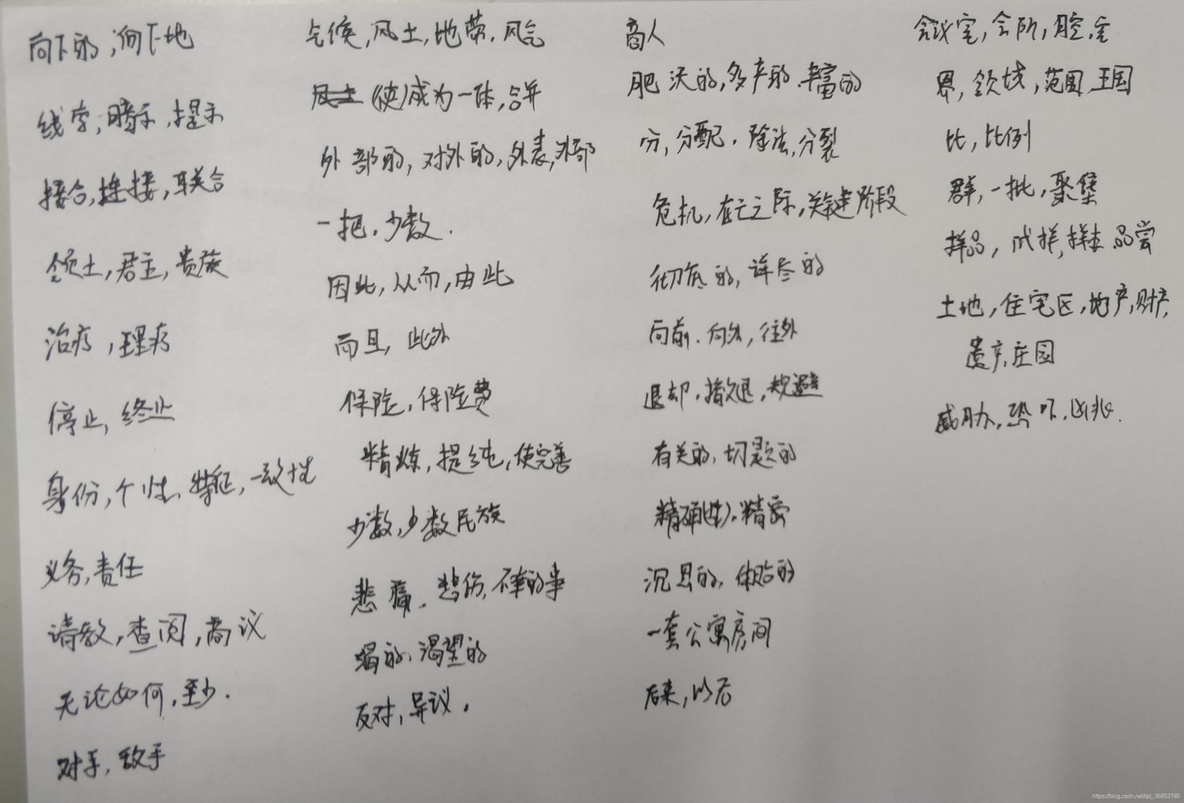 向下的,向下地
线索,暗示,提示
接合,连接,联合
领土,君主,贵族
治疗,理疗
停止,终止
身份,个性,特征,一致性
义务,责任
请教,查阅,商议
无论如何,至少.
对手,敌手
气候,风土,地带,风气
风土 (使)成为一体,合并
外部的,对外的,外表,外部
一把,少数.
因此,从而,由此
而且,此外
保险,保险费
精炼,提纯,使完善
少数,少数民族
悲痛,悲伤,不幸的事
渴的,渴望的
反对,异议,
商人
肥沃的,多产的,丰富的
分,分配,除法,分裂
危机,存亡之际,关键阶段
彻底的,详尽的
向前,向外,往外
退却,撤退,规避
有关的,切题的
精确(性),精密
沉思的,体贴的
一套公寓房间
后来,以后
会议室,会所,腔,室
界,领域,范围,王国
比,比例
群,一批,聚集
样品,试样,样本 品尝
土地,住宅区,地产,财产,
遗产,庄园
威胁,恐吓,凶兆.
https://blog.csdn.net/qq_36852780